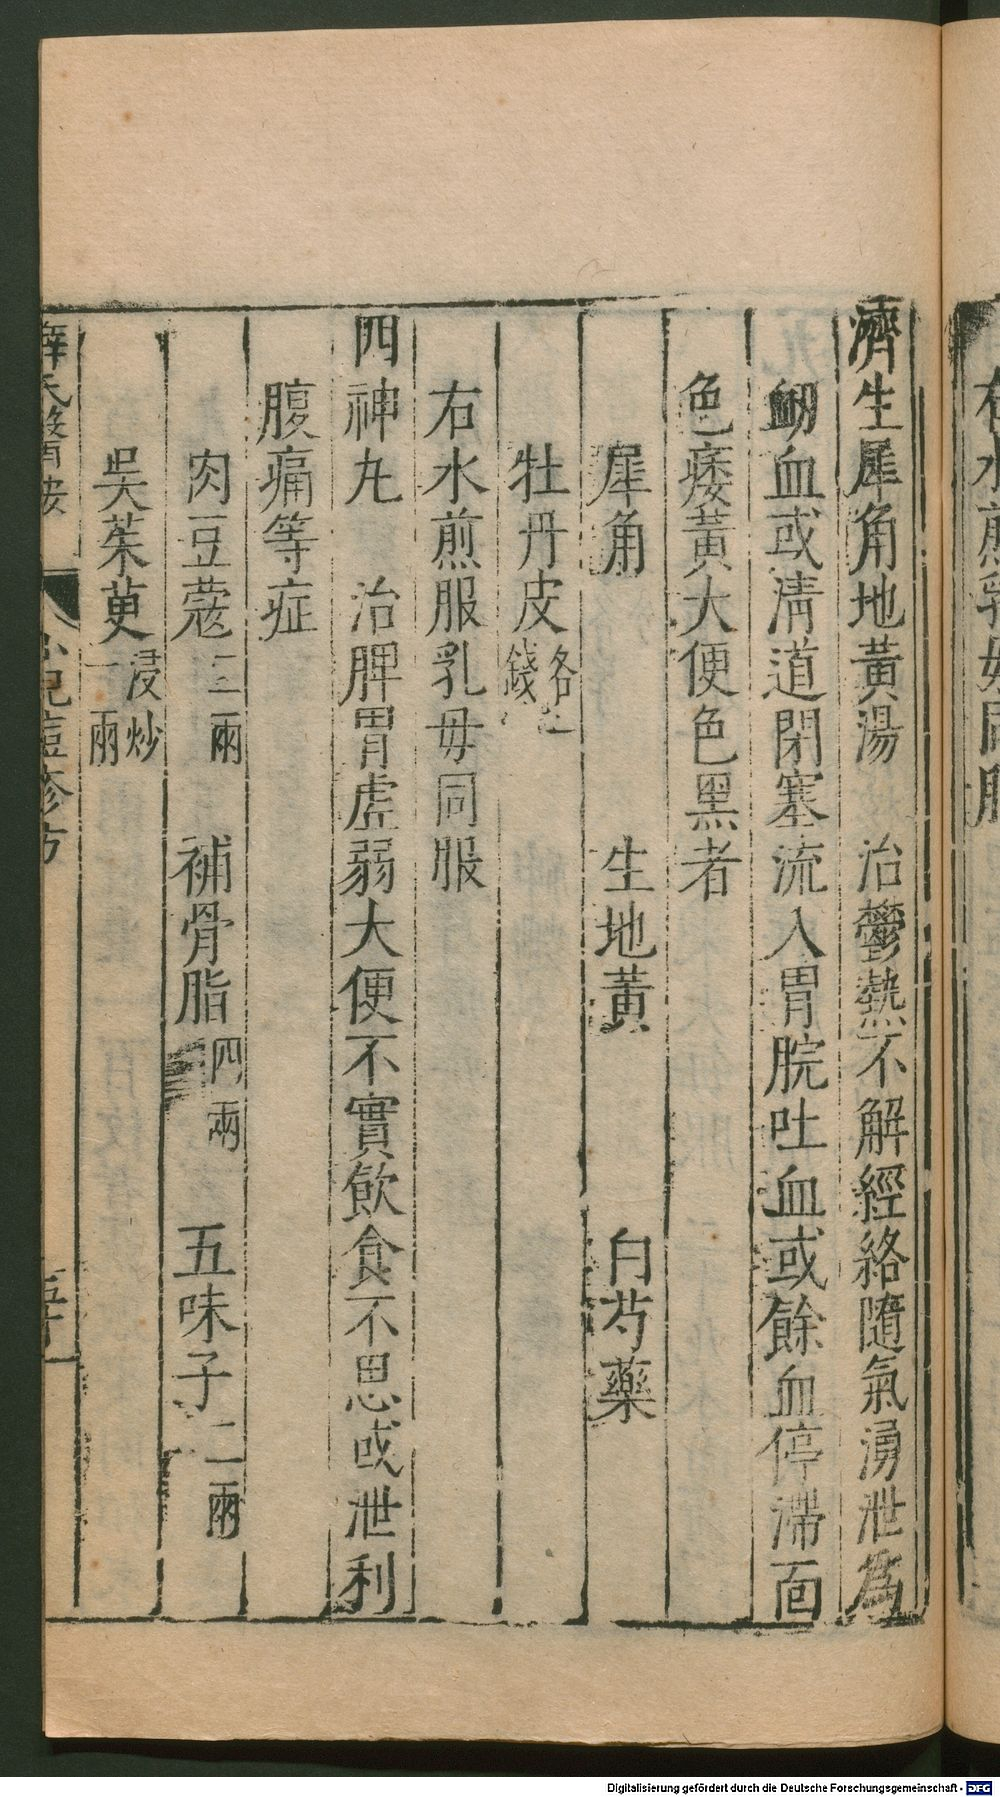 濟生犀角地黃湯　治鬱熱不解經絡隨氣湧泄爲
衂血或淸道閉塞流入胃脘吐血或餘血停滯面
色痿黃大便色黑者
犀角　生地黃　白芍藥
牡丹皮各錢
右水煎服乳母同服
四神丸　治脾胃虛弱大便不實飲食不思或泄利
腹痛等症
肉豆蔻二兩　補骨脂四兩　五味子二兩
吳茱萸浸炒一兩
薛氏醫按　小兒痘疹方
Digitalisierung gefördert durch die Deutsche Forschungsgemeinschaft - DFG